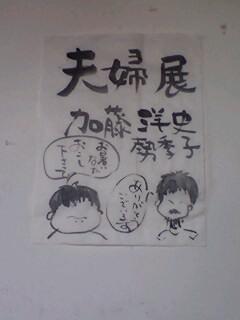 夫婦展
加藤 洋史
勢季子
お暑い
なか
おこし
下さって
ありがとう
ございます